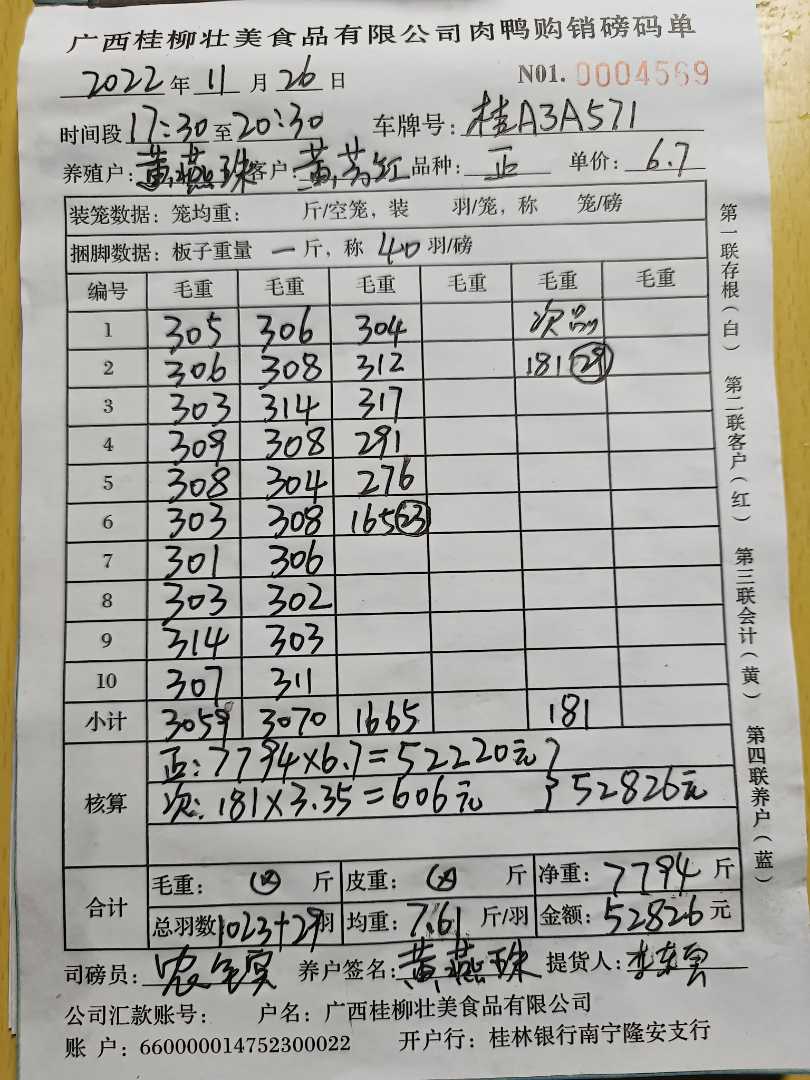 广西桂柳壮美食品有限公司肉鸭购销磅码单
2022 年 11 月 26 日 N01. 0004569
时间段 17:30 至 20:30 车牌号: 桂A3A571
养殖户: 黄燕珠 客户: 黄 红 品种: 正 单价: 6.7
装笼数据: 笼均重: 斤/空笼, 装 羽/笼, 称 笼/磅
捆脚数据: 板子重量 一 斤, 称 40 羽/磅
编号 毛重 毛重 毛重 毛重 毛重 毛重
1 305 306 304 次品
2 306 308 312 181 29
3 303 314 317
4 309 308 291
5 308 304 276
6 303 308 165 23
7 301 306
8 303 302
9 314 303
10 307 311
小计 3059 3070 1665 181
核算 正: 7794×6.7=52220元
次: 181×3.35=606元 } 52826元
合计 毛重: 斤 皮重: 斤 净重: 7794 斤
总羽数 1023+29 羽 均重: 7.61 斤/羽 金额: 52826 元
司磅员: 养户签名: 黄燕珠 提货人: 李
公司汇款账号: 户名: 广西桂柳壮美食品有限公司
账 户: 660000014752300022 开户行: 桂林银行南宁隆安支行
第一联存根(白) 第二联客户(红) 第三联会计(黄) 第四联养户(蓝)